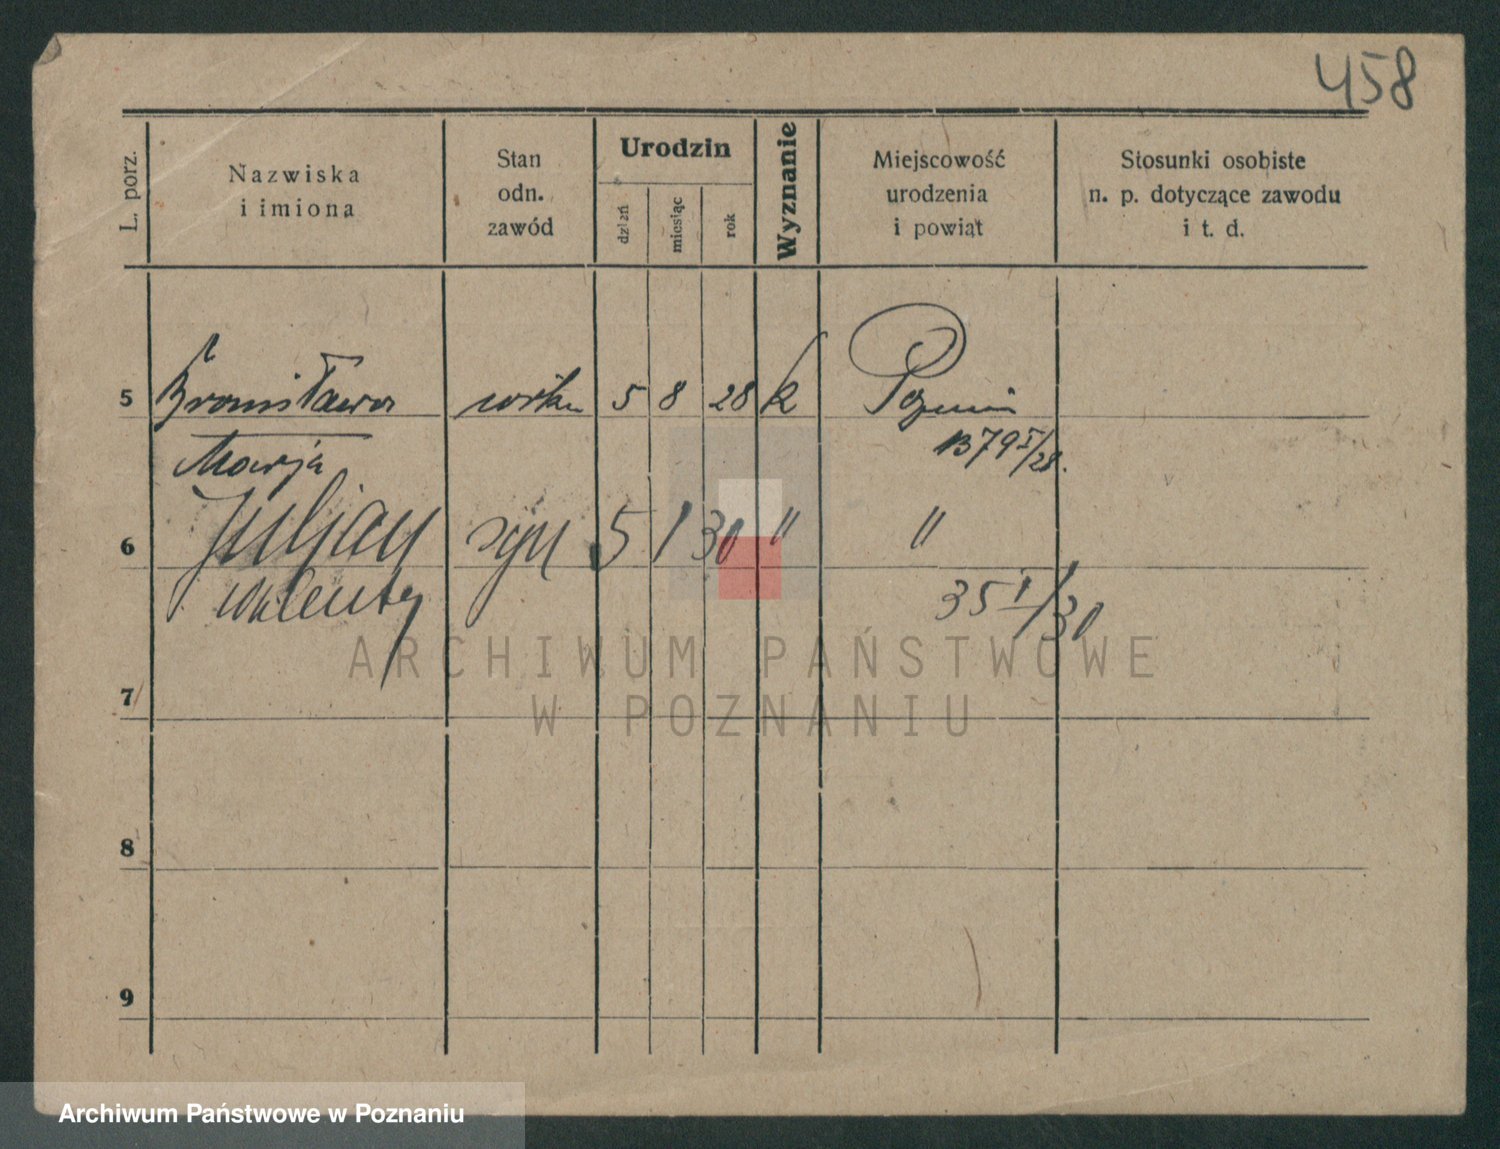 458
L. porz.
Nazwiska
i imiona
Stan
odn.
zawód
Urodzin
dzień
miesiąc
rok
Wyznanie
Miejscowość
urodzenia
i powiat
Stosunki osobiste
n. p. dotyczące zawodu
i t. d.
5 Bronisława 5 8 28 k
Marja
B 79 I/28.
6 Juljan syn 5 1 30 " "
Walenty 35 I/30
7
8
9
ARCHIWUM PAŃSTWOWE
W POZNANIU
Archiwum Państwowe w Poznaniu